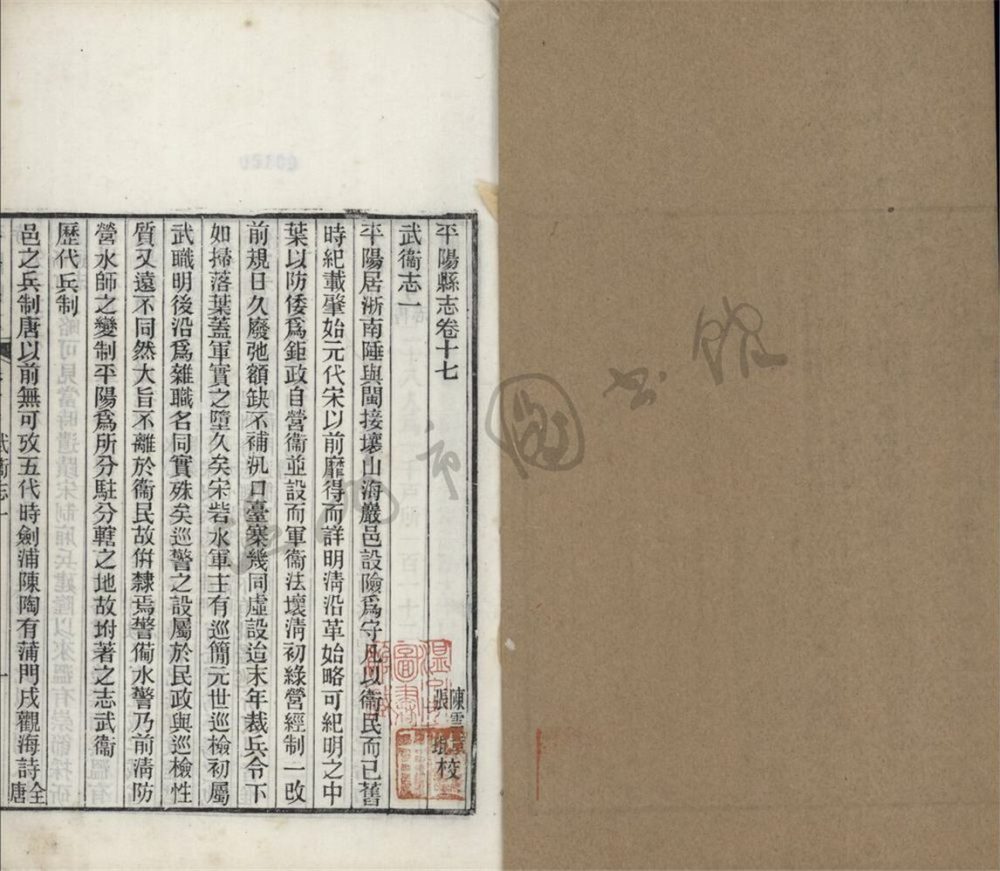 平陽縣志卷十七
武衞志一
陳
張
校
平陽居浙南陲與閩接壤山海嚴邑設險爲守凡以衞民而已舊
時紀載肇始元代宋以前靡得而詳明淸沿革始略可紀明之中
葉以防倭爲鉅政自營衞並設而軍衞法壞淸初綠營經制一改
前規日久廢弛額缺不補汛口臺寨幾同虛設迨末年裁兵令下
如掃落葉蓋軍實之墮久矣宋砦水軍主有巡簡元世巡檢初屬
武職明後沿爲雜職名同實殊矣巡警之設屬於民政與巡檢性
質又遠不同然大旨不離於衞民故倂隸焉警備水警乃前淸防
營水師之變制平陽爲所分駐分轄之地故坿著之志武衞
歷代兵制
邑之兵制唐以前無可攷五代時劍浦陳陶有蒲門戍觀海詩全唐
武衞志一
一
圖書館